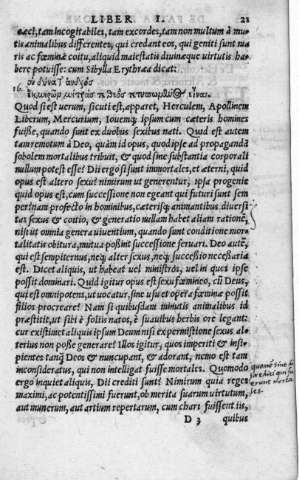 LIBER I. 21
cæci, tam incogitabiles, tam excordes, tam non multum à mu
tis animalibus differentes, qui credant eos, qui geniti sunt ma
ris ac fœminæ coitu, aliquid maiestatis diuinæque virtutis ha-
bere potuisse: cum Sibylla Erythræa dicat:
16.
Quod si est verum, sicuti est, apparet, Herculem, Apollinem
Liberum, Mercurium, Iouemq́; ipsum cum cæteris homines
fuisse, quando sunt ex duobus sexibus nati. Quid est autem
tam remotum à Deo, quàm id opus, quod ipse ad propagandā
sobolem mortalibus tribuit, & quod sine substantia corporali
nullum potest esse? Dij ergo si sunt immortales, et æterni, quid
opus est altero sexu? nimirum ut generentur, ipsa progenie
quid opus est, cum successione non egeant qui futuri sunt sem
per? nam profecto in hominibus, cæterisq́; animantibus diuersi
tas sexus & coitio, & generatio nullam habet aliam rationē,
nisi ut omnia genera uiuentium, quando sunt conditione mor-
talitatis obitura, mutua possint successione seruari. Deo autē,
qui est sempiternus, neq́; alter sexus, neq́; successio necessaria
est. Dicet aliquis, ut habeat uel ministros, uel in quos ipse
possit dominari. Quid igitur opus est sexu fœmineo, cū Deus,
qui est omnipotens, ut uocatur, sine usu et opera fœminæ possit
filios procreare? Nam si quibusdam minutis animalibus id
præstitit, ut sibi è folijs natos, è suauibus herbis ore legant:
cur existimet aliquis ipsum Deum nisi ex permistione sexus al-
terius non posse generare? Illos igitur, quos imperiti & insi-
pientes tanq̃ Deos & nuncupant, & adorant, nemo est tam
inconsideratus, qui non intelligat fuisse mortales. Quomodo
ergo inquiet aliquis, Dij crediti sunt? Nimirum quia reges
maximi, ac potentissimi fuerunt, ob merita suarum virtutum,
aut munerum, aut artium repertarum, cum chari fuissent ijs,
D 3 quibus